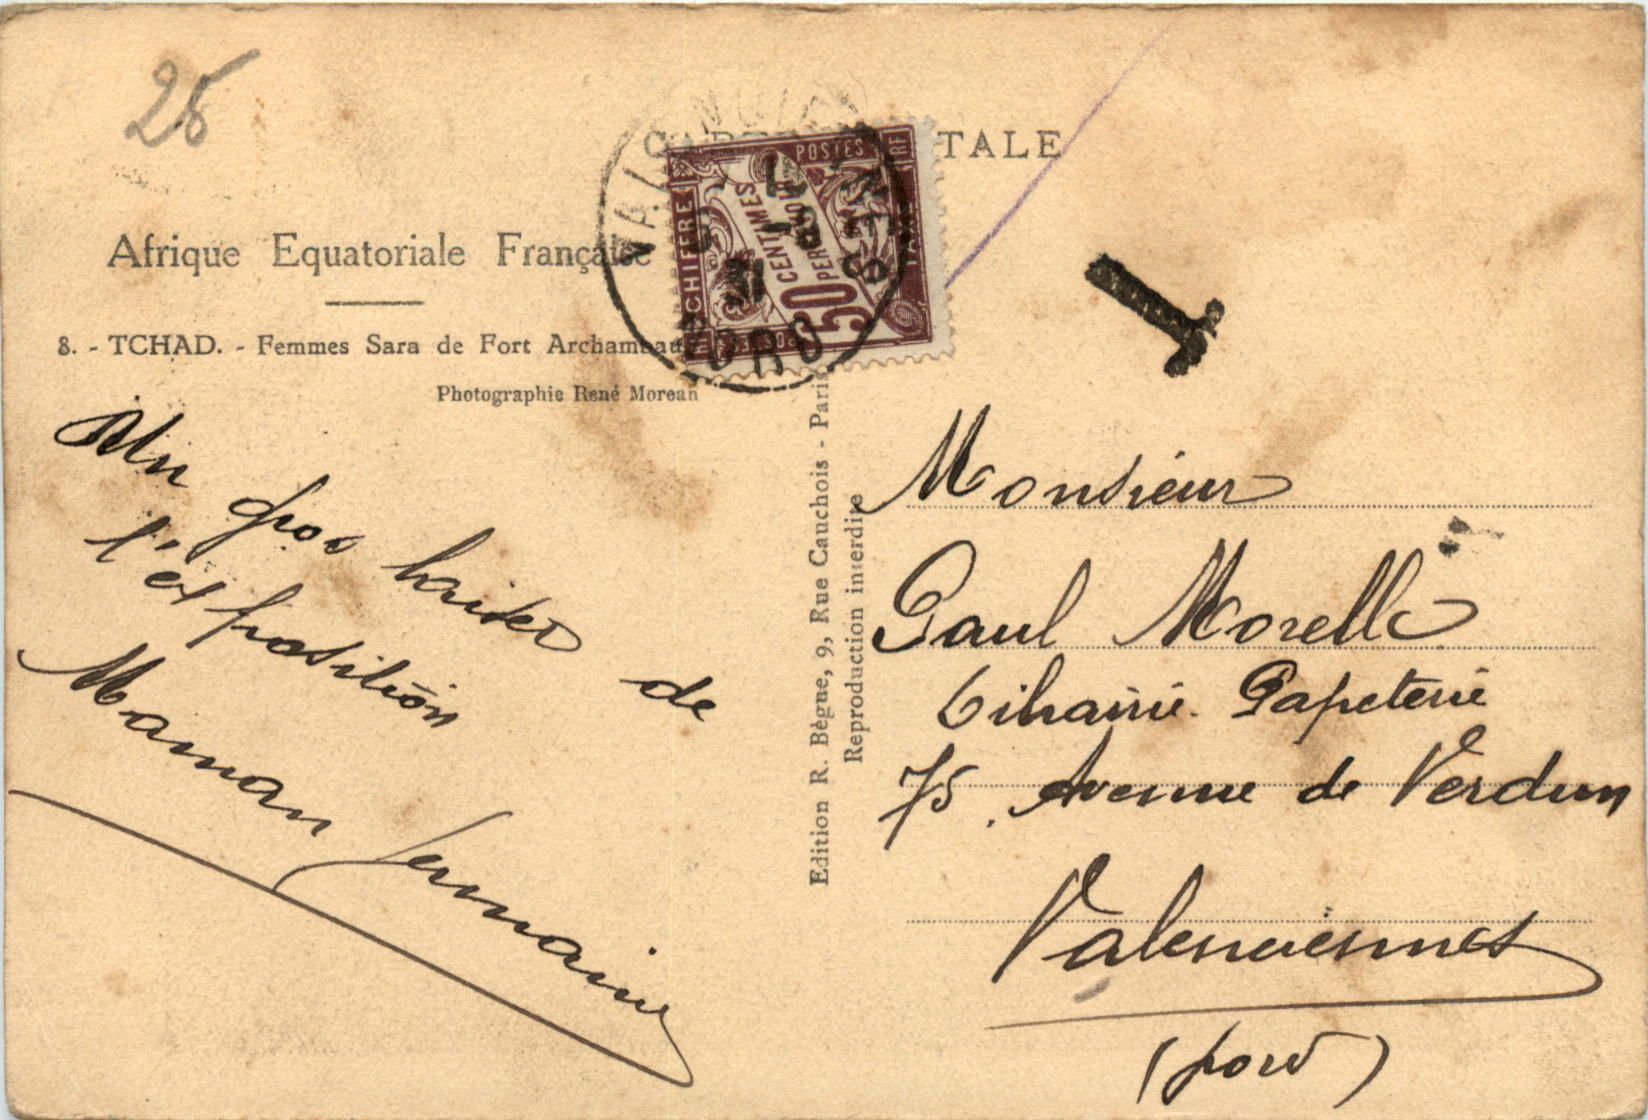 25
CARTE POSTALE
Afrique Equatoriale Française
8. - TCHAD. - Femmes Sara de Fort Archambau
Photographie René Moreau
VALENCIENNES
NORD
31
CHIFFRE
POSTES
RF
50
CENTIMES
PERCEVOIR
T
Edition R. Bègue, 9, Rue Cauchois - Paris
Reproduction interdite
Un gros baiser de
l'exposition
Maman Germaine
Monsieur
Paul Morelle
Librairie. Papeterie
75, Avenue de Verdun
Valenciennes
(Nord)